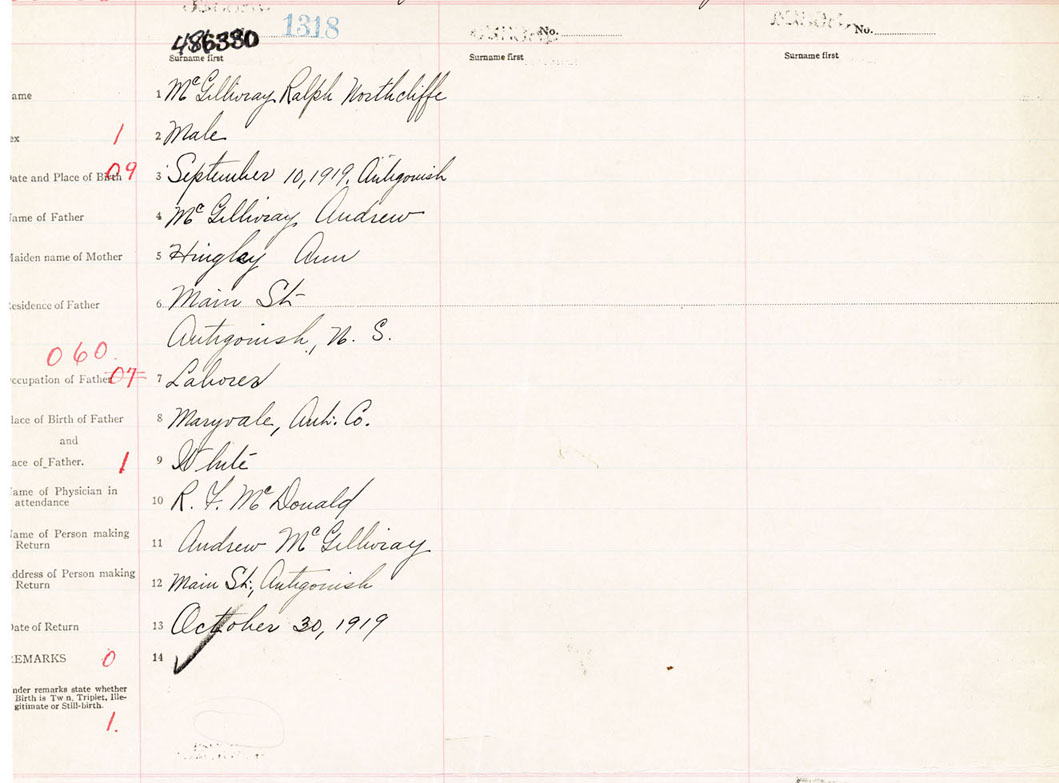 1318
486380 No. No.
Surname first Surname first Surname first
ame 1 McGillivray Ralph Northcliffe
ex 1 2 Male
Date and Place of Birth 09 3 September 10, 1919, Antigonish
Name of Father 4 McGillivray Andrew
Maiden name of Mother 5 Hingley Ann
esidence of Father 6 Main St.
Antigonish, N. S.
060.
ccupation of Father 07 7 Laborer
lace of Birth of Father 8 Maryvale, Ant. Co.
and
ace of Father. 1 9 White
Name of Physician in
attendance 10 R. F. McDonald
Name of Person making
Return 11 Andrew McGillivray
ddress of Person making
Return 12 Main St., Antigonish
Date of Return 13 October 30, 1919
EMARKS 0 14
nder remarks state whether
Birth is Tw n, Triplet, Ille-
gitimate or Still-birth.
1.